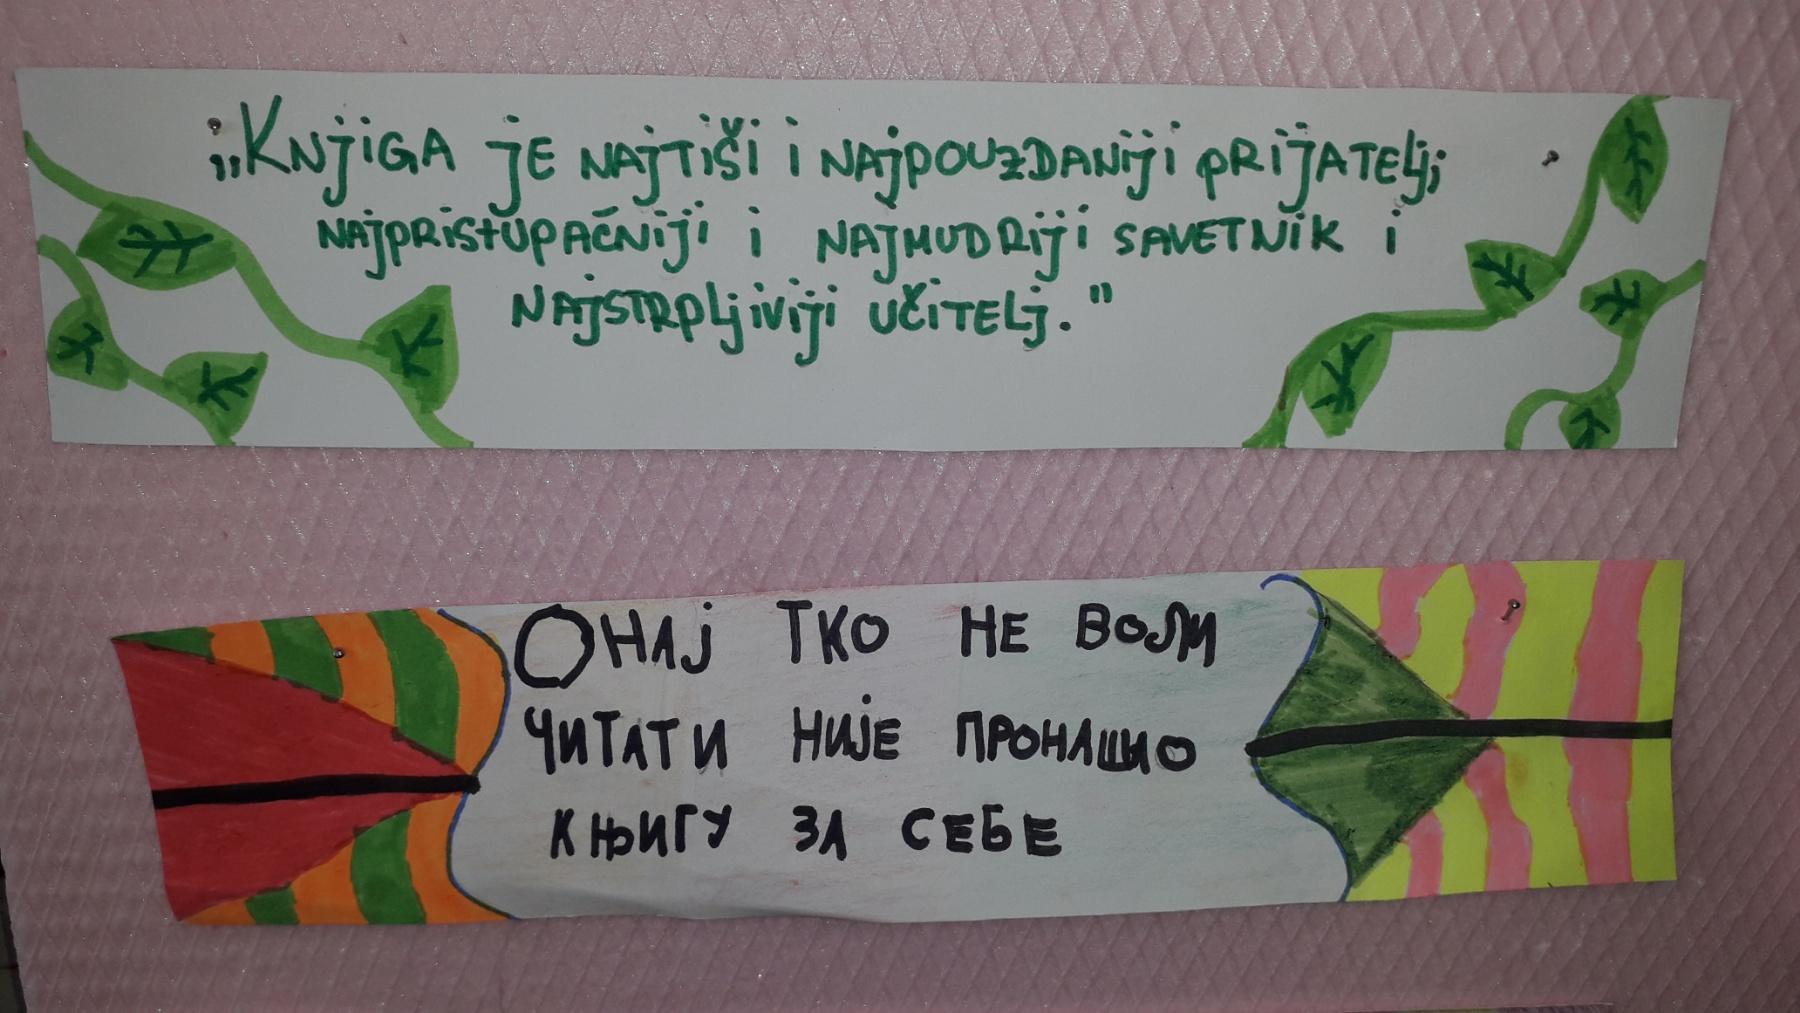 „KNJIGA JE NAJTIŠI I NAJPOUZDANIJI PRIJATELJ;
NAJPRISTUPAČNIJI I NAJMUDRIJI SAVETNIK I
NAJSTRPLJIVIJI UČITELJ."
ОНАЈ ТКО НЕ ВОЛИ
ЧИТАТИ НИЈЕ ПРОНАШИО
КЊИГУ ЗА СЕБЕ